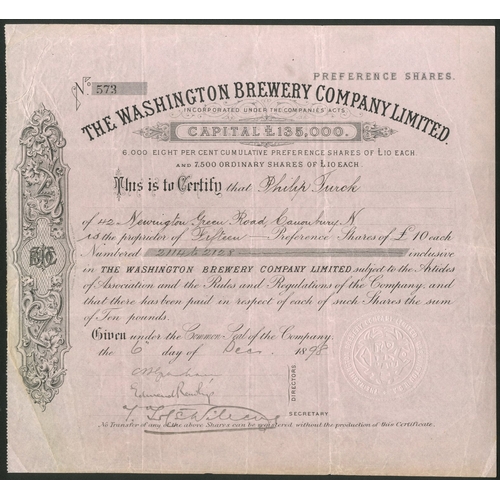 PREFERENCE SHARES.
No. 573
THE WASHINGTON BREWERY COMPANY LIMITED.
INCORPORATED UNDER THE COMPANIES ACTS
CAPITAL £135,000.
6,000 EIGHT PER CENT CUMULATIVE PREFERENCE SHARES OF £10 EACH.
AND 7,500 ORDINARY SHARES OF £10 EACH.
This is to Certify that Philip Turck
of 42 Newington Green Road, Canonbury, N
is the proprietor of Fifteen Preference Shares of £10 each
Numbered 2114 to 2128 inclusive
in THE WASHINGTON BREWERY COMPANY LIMITED, subject to the Articles
of Association and the Rules and Regulations of the Company, and
that there has been paid in respect of each of such Shares the sum
of Ten pounds.
Given under the Common Seal of the Company.
the 6 day of Dec. 1898
DIRECTORS
SECRETARY
No Transfer of any of the above Shares can be registered without the production of this Certificate.